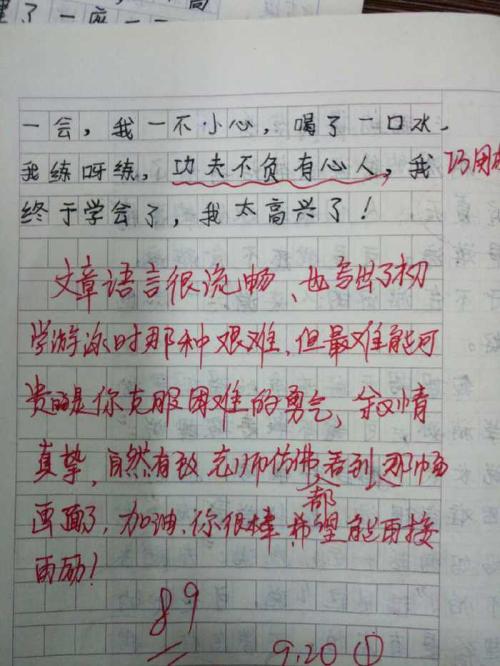 了一座一
一会，我一不小心，喝了一口水.
我练呀练，功夫不负有心人，我
巧用
终于学会了，我太高兴了！
文章语言很流畅、也写出了初
学游泳时那种艰难，但最难能可
贵的是你克服困难的勇气，叙情
真挚，自然有致，老师仿佛看到那幅
都
画面了，加油，你很棒，希望能再接
再励！
89
9.20 ①